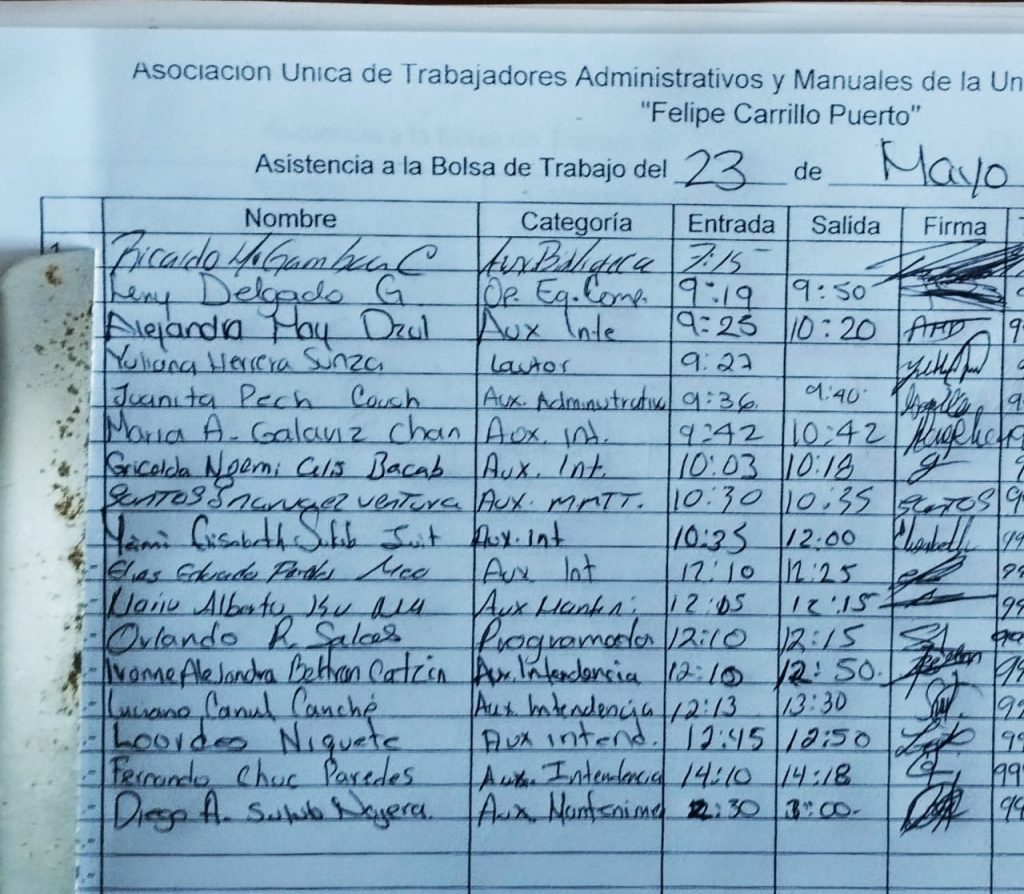 Asociación Única de Trabajadores Administrativos y Manuales de la Un
"Felipe Carrillo Puerto"
Asistencia a la Bolsa de Trabajo del 23 de Mayo
Nombre Categoría Entrada Salida Firma
Ricardo 7:15
Leny Delgado G. Op. Eq. Comp. 9:19 9:50
Alejandra May Dzul Aux Inte 9:25 10:20 AMD
Yuliana Herrera Sunza 9:27
Juanita Pech Couch Aux. Administrativo 9:36 9:40
Maria A. Galaviz Chan Aux. Int. 9:42 10:42
Gricelda Noemi Celis Bacab Aux. Int. 10:03 10:18
Santos ventura Aux. MNTT. 10:30 10:35 Santos
Aux. Int 10:35 12:00
Elias Eduardo Aux Int 12:10 12:25
Mario Alberto Aux Manten: 12:05 12:15
Orlando R. Salas Programador 12:10 12:15
Ivonne Alejandra Beltran Catzin Aux. Intendencia 12:10 12:50
Luciano Canul Canché Aux. Intendencia 12:13 13:30
Lourdes Niquete Aux intend. 12:45 12:50
Fernando Chuc Paredes Aux. Intendencia 14:10 14:18
Diego A. Sulub Najera. Aux. Mantenime 2:30 3:00